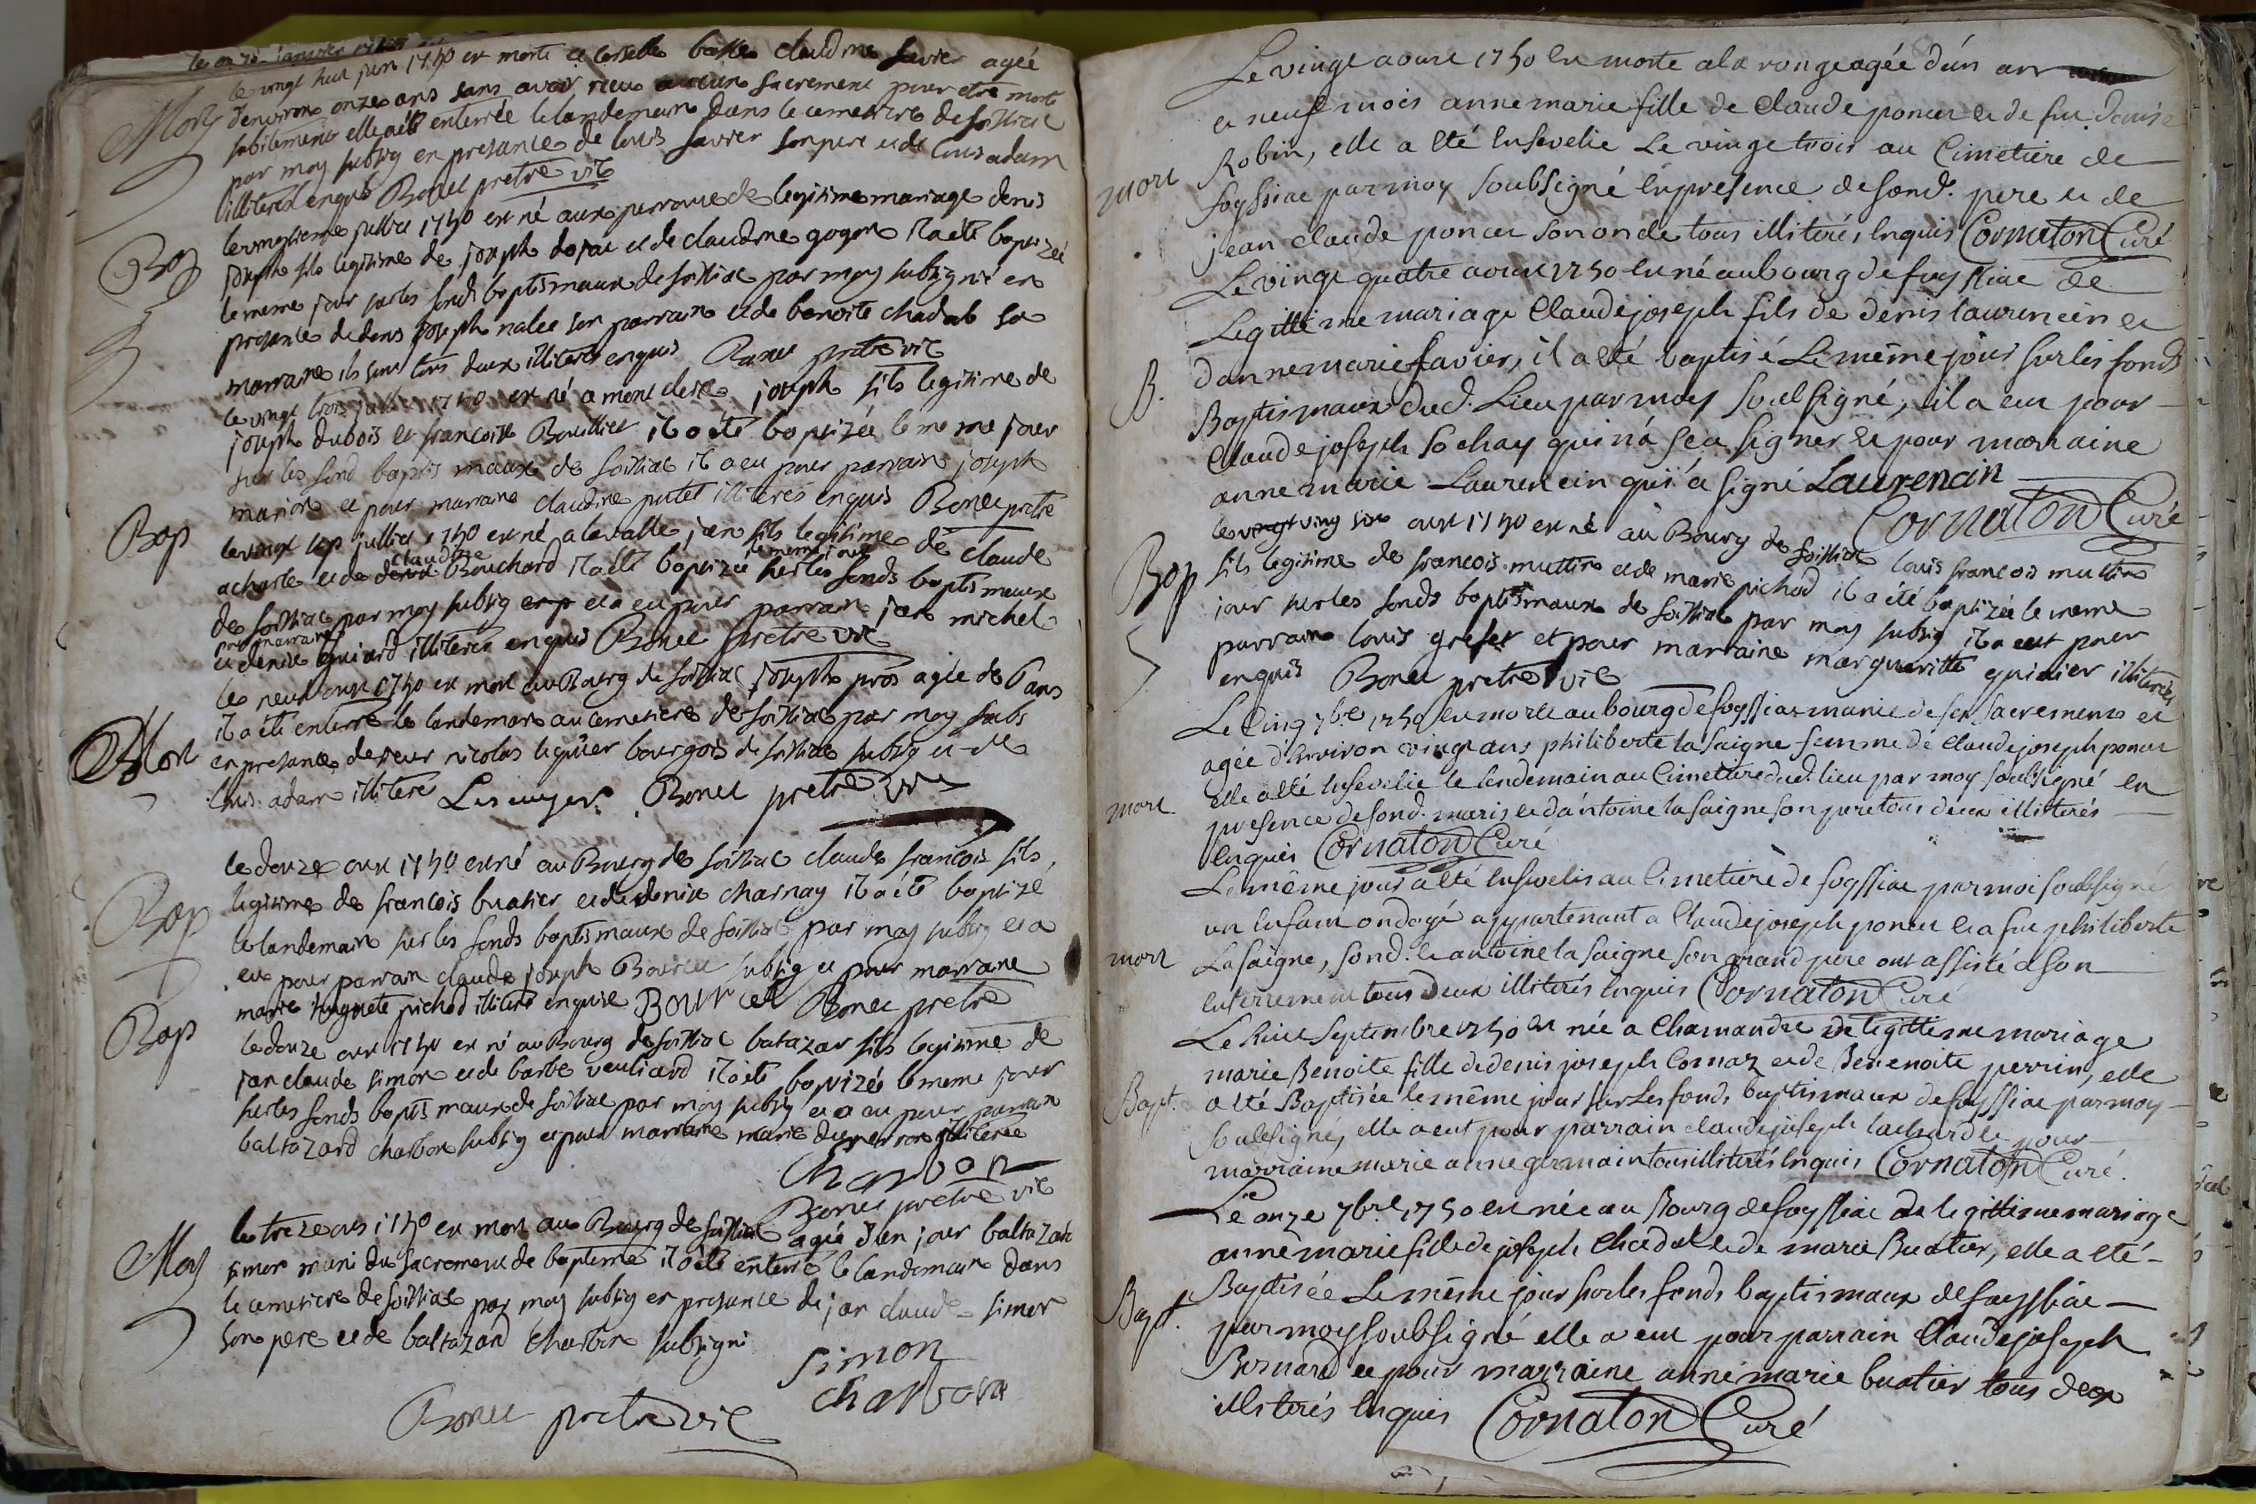 le vingt huit juin 1750 est morte a basse claudine favier agée
Mort d'environ onze ans sans avoir reçu aucun sacrement pour etre morte
subitement elle a été enterrée le landemain dans le cemetiere de soissiat
par moy subsig en presance de louis favier son pere et de louis adam
illiteres enquis Bonet pretre vic
Bap le vingtieme juillet 1750 est né aux de legitime mariage denis
joseph fils legitime de joseph et de claudine gogon il a été baptizé
le meme jour sur les fonds baptismaux de soissiat par moy subsigné en
presance de denis joseph son parrain et de benoite chadal sa
marraine ils sont tous deux illiteres enquis Bonet pretre vic
le vingt trois juillet 1750 est né a joseph fils legitime de
joseph dubois et francoise Bouillet il a été baptizée le meme jour
sur les fond baptismaux de soissiat il a eu pour parrain joseph
marion et pour marraine claudine putet illiteres enquis Bonet pretre
Bap le vingt sep juillet 1750 est né a jean fils legitime de claude
acharle et de claudine Bouchard il a été baptizée le meme jour sur les fonds baptismaux
de soissiat par moy subsig et a eu pour parrain jean michel
et pour marraine denise guiard illiteres enquis Bonet pretre vic
le neuf out 1750 est mort au Bourg de soissiat joseph pros agée de 6 ans
Mort il a été enterré le landemain au cemetiere de soissiat par moy subs
en presance de sieur nicolas bourgois de soissiat subsig et de
louis adam illitere Bonet pretre vic
le douze out 1750 est né au Bourg de soissiat claude francois fils
Bap legitime de francois buatier et de denise charnay il a été baptizé
le landemain sur les fonds baptismaux de soissiat par moy subsig et a
eu pour parrain claude joseph Bourcet subsig et pour marraine
marie huguete pichod illitere enquise Bourcet Bonet pretre
Bap le douze out 1750 est né au Bourg de soissiat batazar fils legitime de
jan claude simon et de barbe vuuliard il a été baptizée le meme jour
sur les fonds baptismaux de soissiat par moy subsig et a eu pour parrain
baltazard charbon subsig et pour marraine marie illiterée
Charbon
Bonet pretre vic
le treze out 1750 est mort au Bourg de soissiat agée d'un jour baltazar
Mort simon muni du sacrement de bapteme il a été enterré le landemain dans
le cemetiere de soissiat par moy subsig en presance de jan claude simon
son pere et de baltazard charbon subsigné
simon
charbon
Bonet pretre vic
Le vingt aoust 1750 est morte a la rouge agée d'un an
et neuf mois anne marie fille de claude poncet et de fue denise
Robin, elle a été ensevelie Le vingt trois au Cimetiere de
mort foyssiac par moy soubsigné en presence de sond. pere et de
jean claude poncet son oncle tous illiterés enquis Cornaton Curé
Le vingt quatre aoust 1750 est né au bourg de foyssiac de
Legittime mariage Claude joseph fils de denis laurencin et
B. d'anne marie favier, il a été baptisé Le même jour sur les fonds
Baptismaux dud. Lieu par moy soubsigné, il a eu pour
Claude joseph sochay qui n'a sçu signer et pour marraine
anne marie Laurencin qui a signé Laurencin
Cornaton Curé
le vingt six out 1750 est né au Bourg de soissiat louis francois muttin
Bap fils legitime de francois muttin et de marie pichod il a été baptizée le meme
jour sur les fonds baptismaux de soissiat par moy subsig il a eut pour
parrain louis grefet et pour marraine margueritte guidier illiterés
enquis Bonet pretre vic
Le cinq 7bre 1750 est morte au bourg de foyssiac munie de ses sacrements et
agée d'environ vingt ans philiberte la saigne femme de Claude joseph poncet
elle a été ensevelie le lendemain au Cimetiere dud. lieu par moy soubsigné en
mort presence de sond. maris et d'antoine la saigne son pere tous deux illiterés
enquis Cornaton Curé
Le même jour a été enseveli au Cimetiere de foyssiac par moi soubsigné
un enfant ondoyé appartenant a Claude joseph poncet et a fue philiberte
mort La saigne, sond. et antoine la saigne son grand pere ont assisté a son
enterrement tous deux illiterés enquis Cornaton Curé
Le huit Septembre 1750 est née a Chamandre de legittime mariage
marie Benoite fille de denis joseph Cornaz et de Benenoite perrin, elle
Bapt. a été Baptisée le même jour sur Les fonds baptismaux de foyssiac par moy
soubsigné, elle a eut pour parrain claude joseph et pour
marraine marie anne germain tous illiterés enquis Cornaton Curé.
Le onze 7bre 1750 est née au Bourg de foyssiac de legittime mariage
anne marie fille de joseph Chadal et de marie Buatier, elle a été
Bapt. Baptisée Le même jour sur les fonds baptismaux de foyssiac
par moy soubsigné elle a eut pour parrain Claude joseph
Bernard et pour marraine anne marie buatier tous deux
illiterés enquis Cornaton Curé